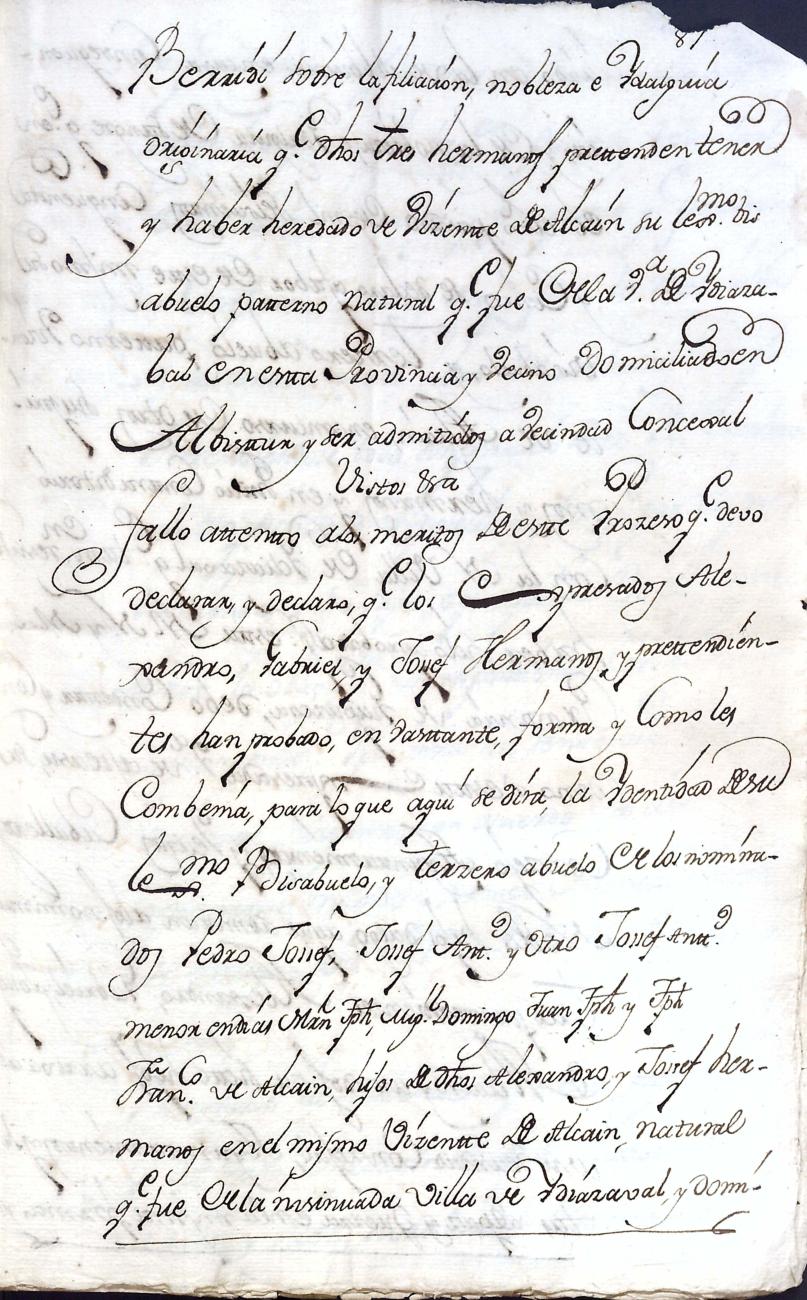 87
Berridi sobre la filiación, nobleza e Ydalguia
originaria q.e dhos tres hermanos prettenden tener
y haber heredado de Vizentte de Alcain su lexmo. bis
abuelo patterno natural q.e fue de la V.a de Ydiaza-
bal en estta Provincia y Vecino Domiciliado en
Albisttur y ser admitidos a Vecindad Concexal
Vistos &ra
fallo attentto a los meritos de estte Prozeso q.e devo
declarar, y declaro, q.e los Expresados Ale-
xandro, Gabriel, y Josef Hermanos, y prettendien-
tes han probado, en vasttante, forma y Como les
Combenia, para lo que aqui se dira, la Ydentidad de su
lexmo. Bisabuelo, y terzero abuelo de los nomina-
dos Pedro Josef, Josef Ant.o y otro Josef Antt.o
menor en dias Mrn Jph, Mig.l Domingo Juan Jph y Jph
Fran.co de Alcain, hijos de dhos Alexandro, y Josef her-
manos en el mismo Vizentte de Alcain, natural
q.e fue de la insinuada Villa de Ydiazaval, y domi-